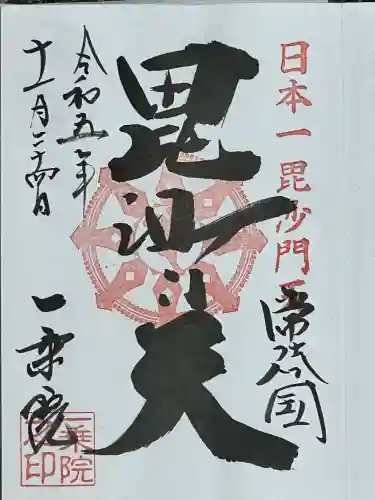 日本一毘沙門天
常陸国
毘沙門天
令和五年
十一月二十四日
一乗院